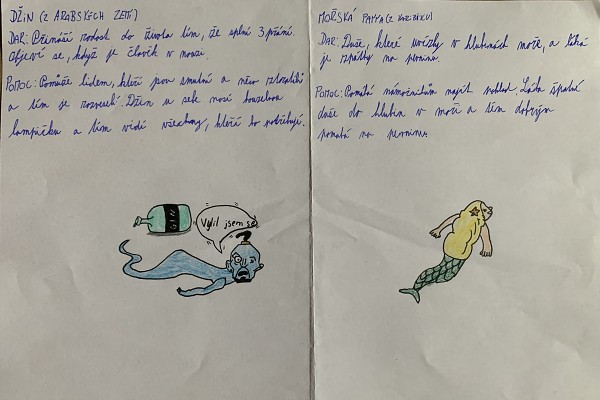 DŽIN (Z ARABSKÝCH ZEMÍ)
DAR: Přináší radost do života tím, že splní 3 přání.
Objeví se, když je člověk v nouzi.
POMOC: Pomůže lidem, kteří jsou smutní a něco ztratili
a tím je rozveselí. Džin u sebe nosí kouzelnou
lampičku a tím vidí všechny, kteří to potřebují.
GIN
Vylil jsem se
MOŘSKÁ PANNA (Z
DAR: Duše, které uvízly v hlubinách moře, a táhá
je zpátky na pevninu.
POMOC: Pomáhá námořníkům najít poklad. Láká špatné
duše do hlubin v moři a těm dobrým
pomáhá na pevninu.